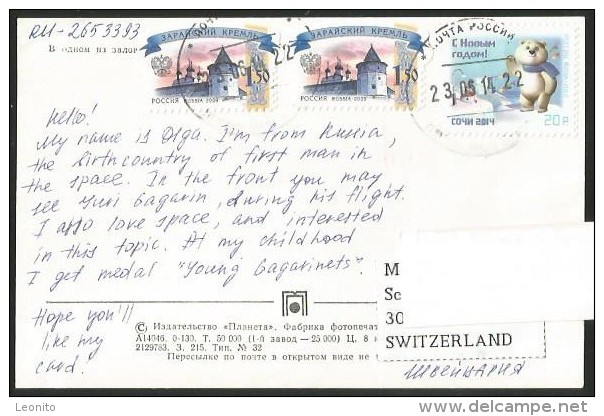 RU-2653393
В одном из залов
ЗАРАЙСКИЙ КРЕМЛЬ
1.50
РОССИЯ RUSSIA 2009
ЗАРАЙСКИЙ КРЕМЛЬ
1.50
РОССИЯ RUSSIA 2009
ПОЧТА РОССИИ
С Новым годом!
23 05 14 22
СОЧИ 2014
20 Р
Hello!
My name is Olga. I'm from Russia,
the birthcountry of first man in
the space. In the front you may
see Yuri Gagarin, during his flight.
I also love space, and interested
in this topic. At my childhood
I get medal "Young Gagarinets".
Hope you'll
like my
card.
© Издательство «Планета». Фабрика фотопечат
А14046. 0-130. Т. 50 000 (1-й завод — 25 000) Ц. 8 к
2129783. З. 215. Тип. № 32
Пересылке по почте в открытом виде не
M
Sc
30
SWITZERLAND
ШВЕЙЦАРИЯ
Leonito
delcampe.net